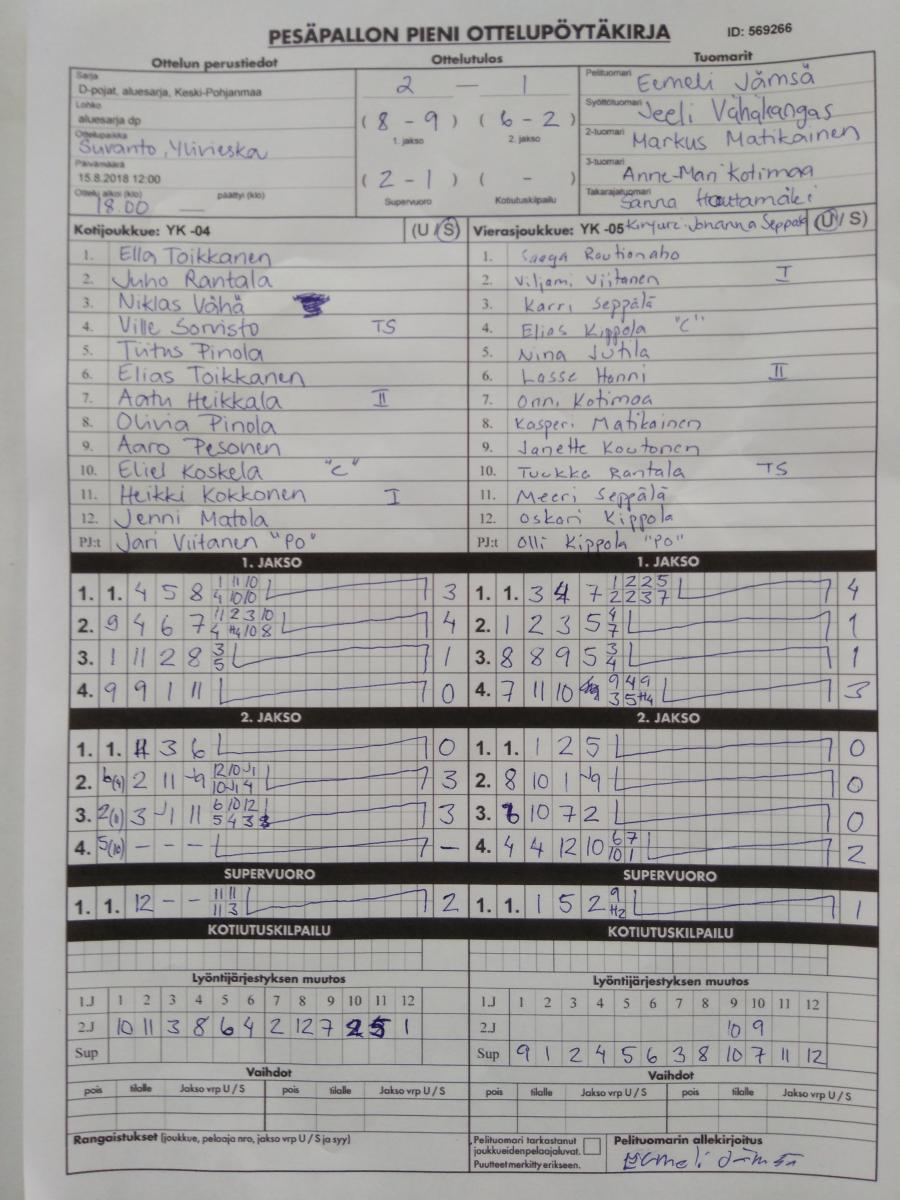 PESÄPALLON PIENI OTTELUPÖYTÄKIRJA
ID: 569266
Ottelun perustiedot
Sarja
D-pojat, aluesarja, Keski-Pohjanmaa
Lohko
aluesarja dp
Ottelupaikka
Suvanto, Ylivieska
Päivämäärä
15.8.2018 12:00
Ottelu alkoi (klo) päättyi (klo)
18.00 —
Ottelutulos
2 — 1
(8 - 9) (6 - 2)
1. jakso 2. jakso
(2 - 1) ( - )
Supervuoro Kotiutuskilpailu
Tuomarit
Pelituomari
Eemeli Jämsä
Syöttötuomari
Jeeli Vähäkangas
2-tuomari
Markus Matikainen
3-tuomari
Anne-Mari Kotimaa
Takarajatuomari
Sanna Hautamäki
Kotijoukkue: YK -04 (U / S)
1. Ella Toikkanen
2. Juho Rantala
3. Niklas Vähä
4. Ville Sorvisto TS
5. Titus Pinola
6. Elias Toikkanen
7. Aatu Heikkala II
8. Olivia Pinola
9. Aaro Pesonen
10. Eliel Koskela "C"
11. Heikki Kokkonen I
12. Jenni Matola
PJ:t Jari Viitanen "PO"
Vierasjoukkue: YK -05 Kirjuri: Johanna Seppälä (U / S)
1. Saaga Rautionaho
2. Viljami Viitanen I
3. Karri Seppälä
4. Elias Kippola "C"
5. Nina Jutila
6. Lasse Hanni II
7. Onni Kotimaa
8. Kasperi Matikainen
9. Janette Koutonen
10. Tuukka Rantala TS
11. Meeri Seppälä
12. Oskari Kippola
PJ:t Olli Kippola "PO"
1. JAKSO
1. 1. 4 5 8 1/4 11/10 10/10 3
2. 9 4 6 7 11/4 2/H4 3/10 10/8 4
3. 1 11 2 8 3/5 1
4. 9 9 1 11 0
1. JAKSO
1. 1. 3 4 7 1/2 2/2 2/3 5/7 4
2. 1 2 3 5 4/7 1
3. 8 8 9 5 3/4 1
4. 7 11 10 9/3 4/5 9/H4 3
2. JAKSO
1. 1. 11 3 6 0
2. 6(9) 2 11 -9 12/10 10/J1 J1/4 3
3. 2(11) 3 J1 11 6/5 10/4 12/3 3
4. 5(10) - - - -
2. JAKSO
1. 1. 1 2 5 0
2. 8 10 1 J9 0
3. 6 10 7 2 0
4. 4 4 12 10 6/10 7/1 2
SUPERVUORO
1. 1. 12 - - 11/11 11/3 2
SUPERVUORO
1. 1. 1 5 2 9/H2 1
KOTIUTUSKILPAILU
KOTIUTUSKILPAILU
Lyöntijärjestyksen muutos
1.J 1 2 3 4 5 6 7 8 9 10 11 12
2.J 10 11 3 8 6 4 2 12 7 9 5 1
Sup
Lyöntijärjestyksen muutos
1.J 1 2 3 4 5 6 7 8 9 10 11 12
2.J 10 9
Sup 9 1 2 4 5 6 3 8 10 7 11 12
Vaihdot
pois tilalle Jakso vrp U / S pois tilalle Jakso vrp U / S
Vaihdot
pois tilalle Jakso vrp U / S pois tilalle Jakso vrp U / S
Rangaistukset (joukkue, pelaaja nro, jakso vrp U / S ja syy)
Pelituomari tarkastanut
joukkueiden pelaajaluvat.
Puutteet merkitty erikseen.
Pelituomarin allekirjoitus
Eemeli Jämsä